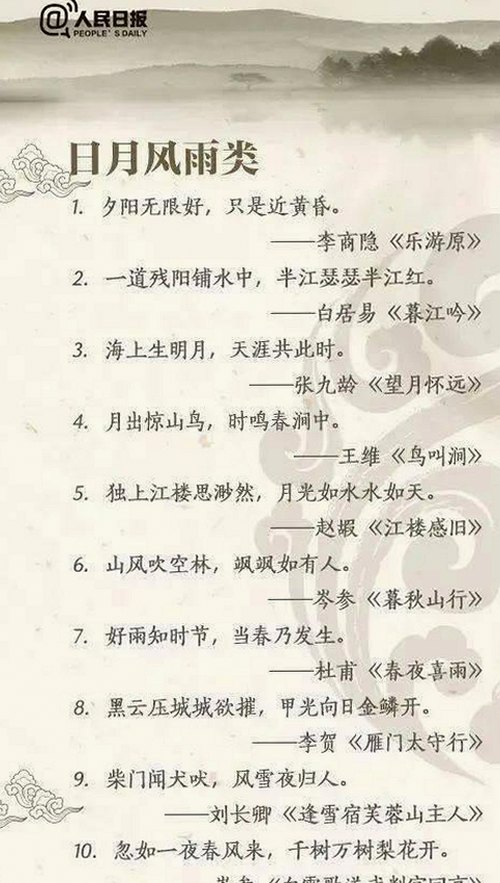 @人民日报
PEOPLE'S DAILY
日月风雨类
1. 夕阳无限好，只是近黄昏。
——李商隐《乐游原》
2. 一道残阳铺水中，半江瑟瑟半江红。
——白居易《暮江吟》
3. 海上生明月，天涯共此时。
——张九龄《望月怀远》
4. 月出惊山鸟，时鸣春涧中。
——王维《鸟叫涧》
5. 独上江楼思渺然，月光如水水如天。
——赵嘏《江楼感旧》
6. 山风吹空林，飒飒如有人。
——岑参《暮秋山行》
7. 好雨知时节，当春乃发生。
——杜甫《春夜喜雨》
8. 黑云压城城欲摧，甲光向日金鳞开。
——李贺《雁门太守行》
9. 柴门闻犬吠，风雪夜归人。
——刘长卿《逢雪宿芙蓉山主人》
10. 忽如一夜春风来，千树万树梨花开。